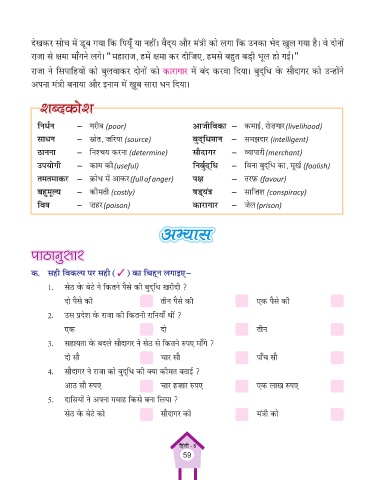 देखकर सोच में डूब गया कि पियूँ या नहीं। वैद्य और मंत्री को लगा कि उनका भेद खुल गया है। वे दोनों
राजा से क्षमा माँगने लगे। "महाराज, हमें क्षमा कर दीजिए, हमसे बहुत बड़ी भूल हो गई।"
राजा ने सिपाहियों को बुलवाकर दोनों को कारागार में बंद करवा दिया। बुद्धि के सौदागर को उन्होंने
अपना मंत्री बनाया और इनाम में खूब सारा धन दिया।
शब्दकोश
निर्धन – गरीब (poor) आजीविका – कमाई, रोज़गार (livelihood)
साधन – स्रोत, ज़रिया (source) बुद्धिमान – समझदार (intelligent)
ठानना – निश्चय करना (determine) सौदागर – व्यापारी (merchant)
उपयोगी – काम की (useful) निर्बुद्धि – बिना बुद्धि का, मूर्ख (foolish)
तमतमाकर – क्रोध में आकर (full of anger) पक्ष – तरफ़ (favour)
बहुमूल्य – कीमती (costly) षड्यंत्र – साज़िश (conspiracy)
विष – ज़हर (poison) कारागार – जेल (prison)
अभ्यास
पाठानुसार
क. सही विकल्प पर सही (✓) का चिह्न लगाइए–
1. सेठ के बेटे ने कितने पैसे की बुद्धि खरीदी ?
दो पैसे की तीन पैसे की एक पैसे की
2. उस प्रदेश के राजा की कितनी रानियाँ थीं ?
एक दो तीन
3. सहायता के बदले सौदागर ने सेठ से कितने रुपए माँगे ?
दो सौ चार सौ पाँच सौ
4. सौदागर ने राजा को बुद्धि की क्या कीमत बताई ?
आठ सौ रुपए चार हज़ार रुपए एक लाख रुपए
5. दासियों ने अपना गवाह किसे बना लिया ?
सेठ के बेटे को सौदागर को मंत्री को
हिंदी - 5
59